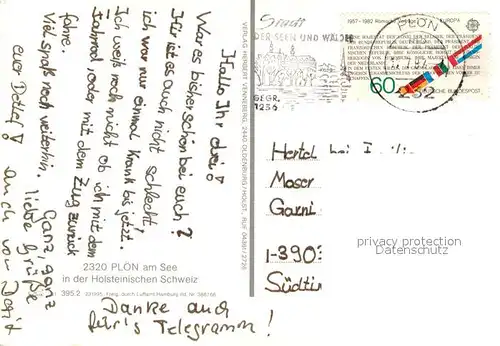 Hallo Ihr drei!
War es bisher schön bei euch?
Hier ist es auch nicht schlecht,
ich war nur einmal krank bis jetzt.
Ich weis noch nicht ob ich mit dem
Fahrrad oder mit dem Zug zurück
fahre.
Viel spaß noch weiterhin.
Ganz, ganz
liebe Grüße
euer Detlef!
auch von Dorit
Danke auch
für's Telegramm!
2320 PLÖN am See
in der Holsteinischen Schweiz
395 2
VERLAG HERBERT VENNEBERG, 2440 OLDENBURG/HOLST., RUF 04361/2728
Stadt
DER SEEN UND WÄLDER
GEGR.
1236
PLÖN
2322
1957-1982
EUROPA
60
DEUTSCHE BUNDESPOST
Hertel bei
Moser
Garni
I-390
Südtir
privacy protection
Datenschutz